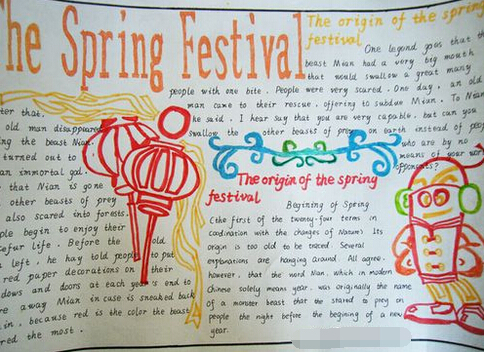 The Spring Festival
The origin of the spring
festival
One legend goes that th
beast Mian had a very big mouth
that would swallow a great many
people with one bite. People were very scared. One day, an old
man came to their rescue, offering to subdue Mian. To Nian
he said. I hear say that you are very capable, but can you
swallow the other beasts of prey on earth instead of peop
who are by no
means of your wor
opponents?
ter that,
old man disappeared
ing the beast Nian.
turned out to
an immortal god.
that Nian is gone
other beasts of prey
also scared into forests.
ple begin to enjoy their
ceful life. Before the old
left, he hay told people to put
red paper decorations on their
dows and doors at each year's end to
re away Mian in case is sneaked back
in, because red is the color the beast
red the most.
The origin of the spring
festival
Begining of Spring
(the first of the twenty-four terms in
coodination with the changes of Nature). Its
origin is too old to be traced. Several
explnations are hanging around. All agree.
however, that the word Nian, which in modern
Chinese solely means year, was originally the name
of a monster beast that the started to prey on
people the night before the begining of a new
year.